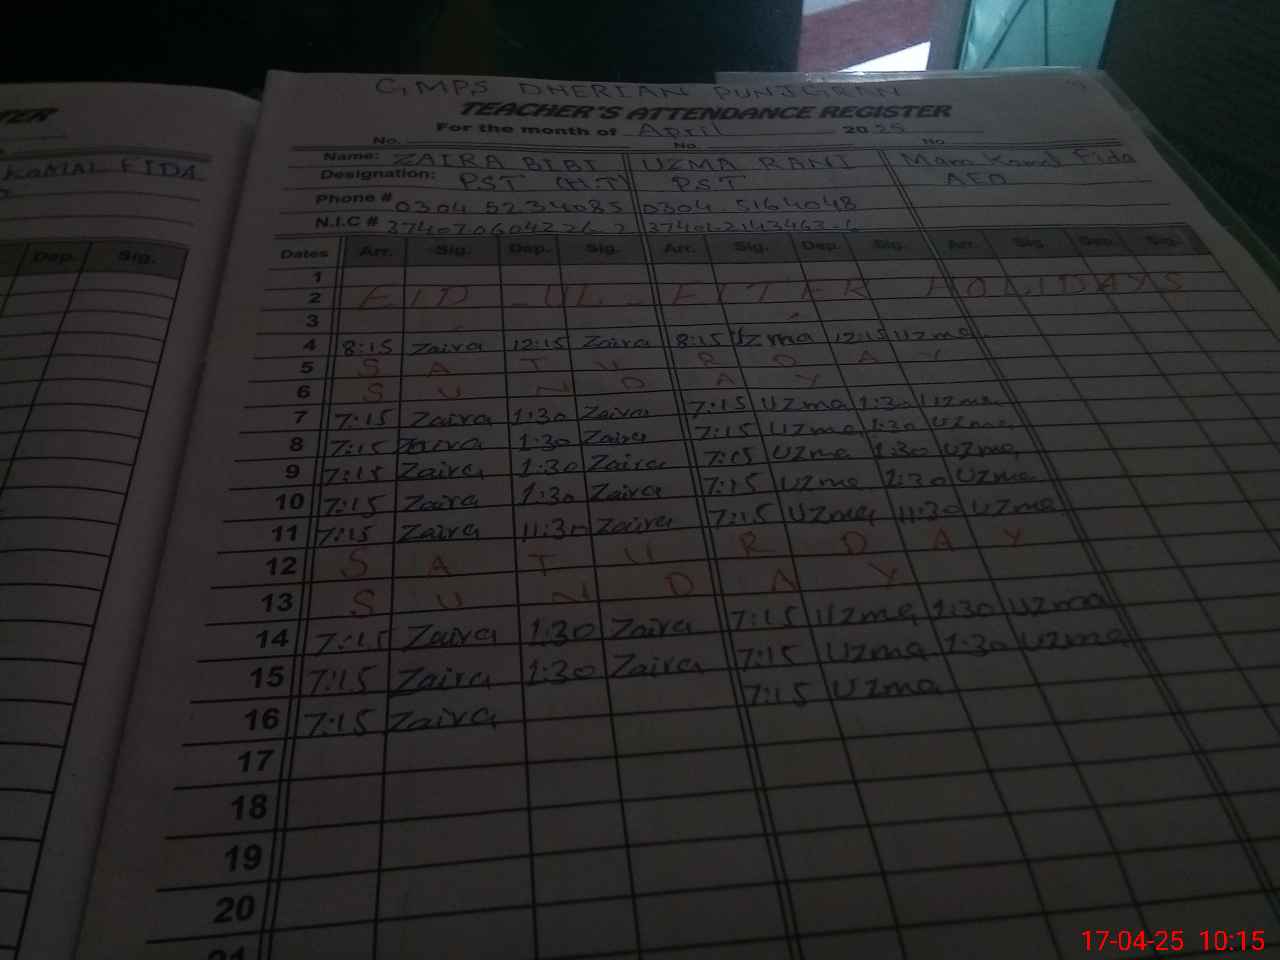 TER
KAMAL FIDA
Dep. Sig.
GMPS DHERIAN PUNJGRAN
TEACHER'S ATTENDANCE REGISTER
For the month of April 2025
No. No. No.
Name: ZAIRA BIBI UZMA RANI Mam Kamal Fida
Designation: PST (H.T) PST AEO
Phone # 0304 5234085 0304 5164048
N.I.C #
Dates Arr. Sig. Dep. Sig. Arr. Sig. Dep. Sig. Arr. Sig. Dep. Sig.
1
2 EID - UL - FITER HOLIDAYS
3
4 8:15 Zaira 12:15 Zaira 8:15 Uzma 12:15 Uzma
5 S A T U R D A Y
6 S U N D A Y
7 7:15 Zaira 1:30 Zaira 7:15 Uzma 1:30 Uzma
8 7:15 Zaira 1:30 Zaira 7:15 Uzma 1:30 Uzma
9 7:15 Zaira 1:30 Zaira 7:15 Uzma 1:30 Uzma
10 7:15 Zaira 1:30 Zaira 7:15 Uzma 1:30 Uzma
11 7:15 Zaira 11:30 Zaira 7:15 Uzma 11:30 Uzma
12 S A T U R D A Y
13 S U N D A Y
14 7:15 Zaira 1:30 Zaira 7:15 Uzma 1:30 Uzma
15 7:15 Zaira 1:30 Zaira 7:15 Uzma 1:30 Uzma
16 7:15 Zaira 7:15 Uzma
17
18
19
20
21
17-04-25 10:15